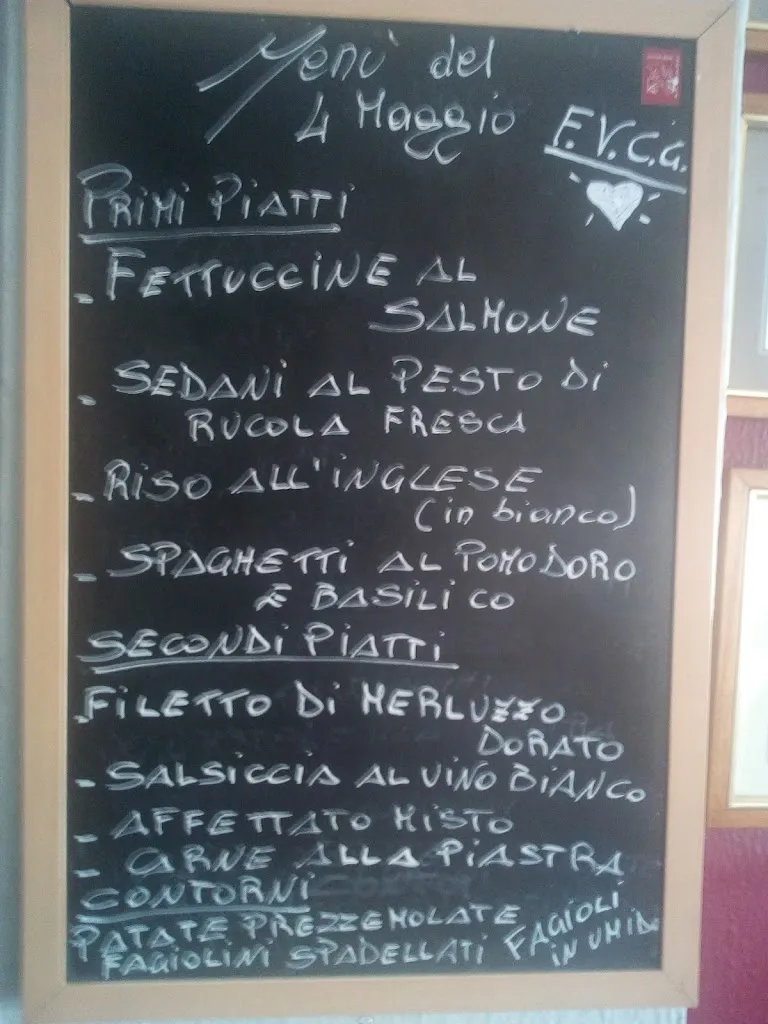 Menù del
4 Maggio
F.V.C.G.
PRIMI PIATTI
- FETTUCCINE AL
SALMONE
- SEDANI AL PESTO Di
RUCOLA FRESCA
- RISO ALL'INGLESE
(in bianco)
- SPAGHETTI AL POMODORO
E BASILICO
SECONDI PIATTI
- FILETTO Di MERLUZZO
DORATO
- SALSICCIA AL VINO BIANCO
- AFFETTATO MISTO
- CARNE ALLA PIASTRA
CONTORNI
PATATE PREZZEMOLATE
FAGIOLINI SPADELLATI
FAGIOLI
IN UMIDO